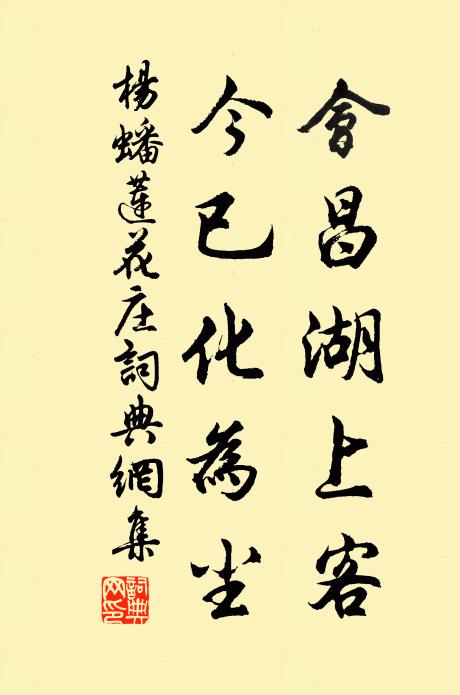 會昌湖上客
今已化為尘
楊蟠蓮花庄詞典網集
詞典网印